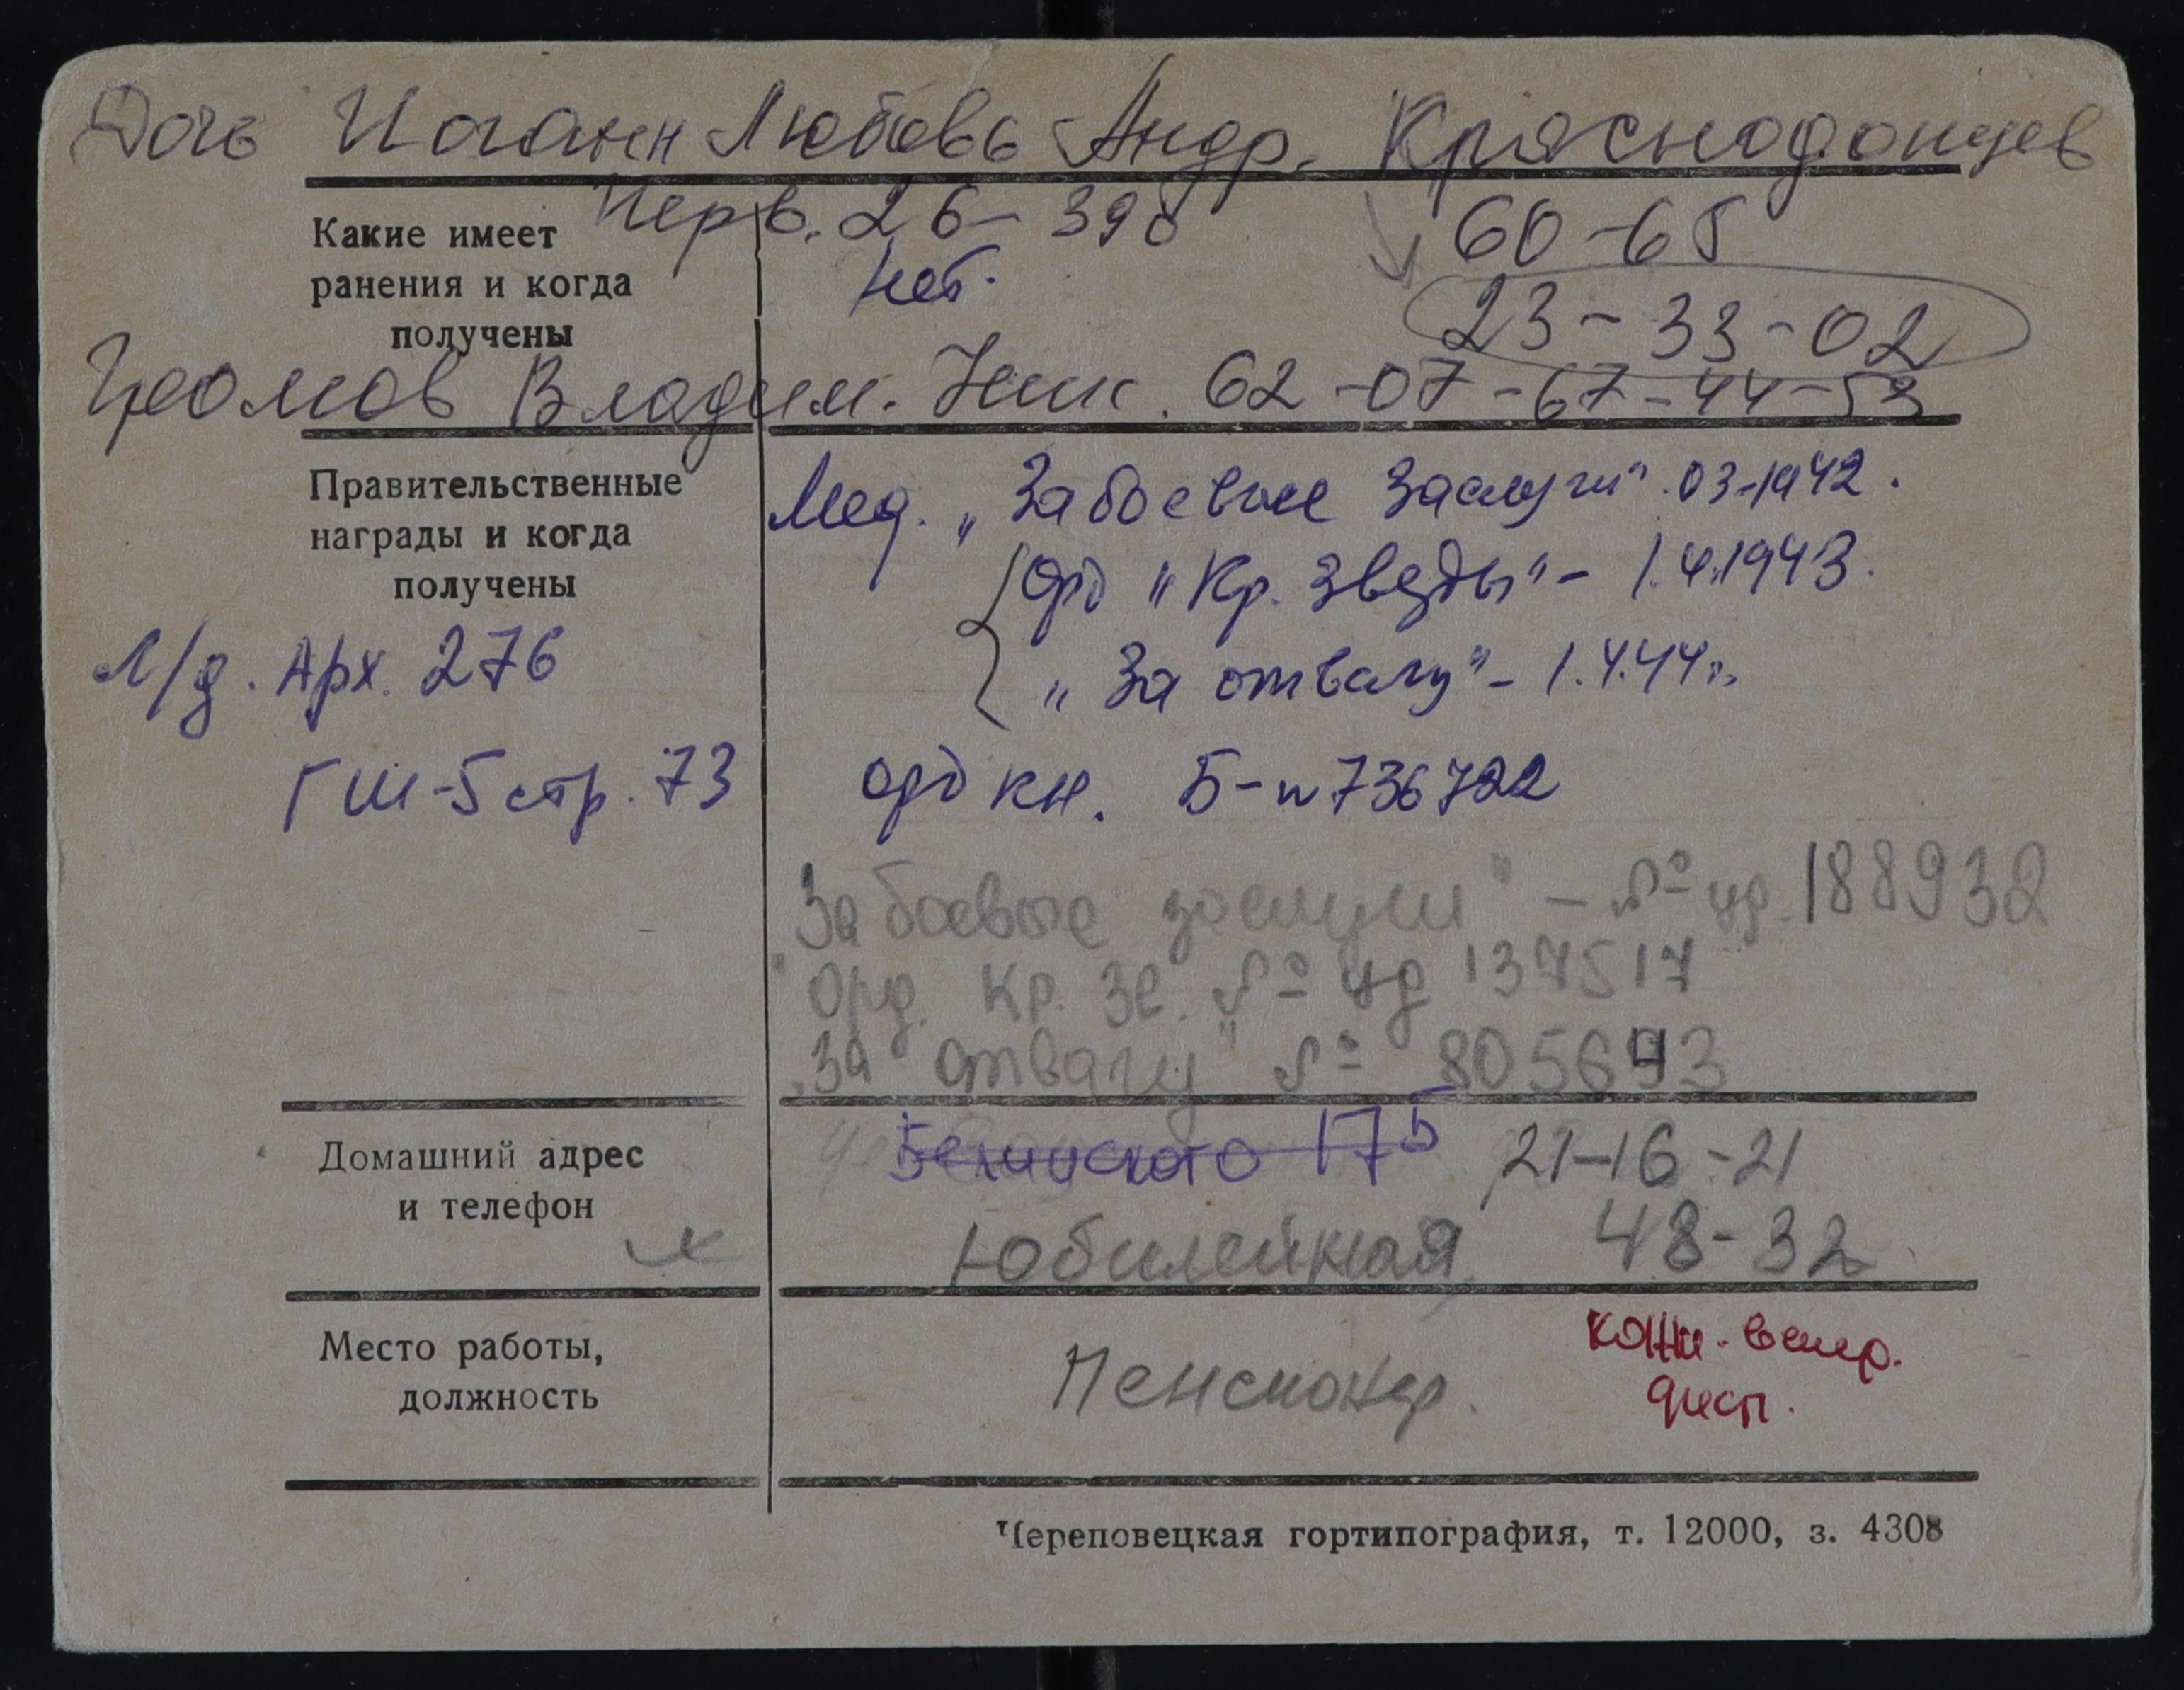 Дочь Иоганн Любовь Андр. Краснодонцев
Перв. 26-398 60-65
Какие имеет
ранения и когда
получены
нет.
23-33-02
Громов Владим. Ник. 62-07-67-44-53
Правительственные
награды и когда
получены
Мед. "За боевые заслуги". 03-1942.
Орд "Кр. Звезды" - 1.4.1943.
"За отвагу" - 1.4.44г.
Л/д. Арх. 276
ГШ-5 стр. 73
орд кн. Б-№736722
За боевые заслуги" - № уд. 188932
Орд. Кр. Зв. № уд 137517
"За отвагу" №
Домашний адрес
и телефон
Белинского 17 Б 21-16-21
Юбилейная 48-32
Место работы,
должность
Пенсионер.
кожн.-венер.
дисп.
Череповецкая гортипография, т. 12000, з. 4308